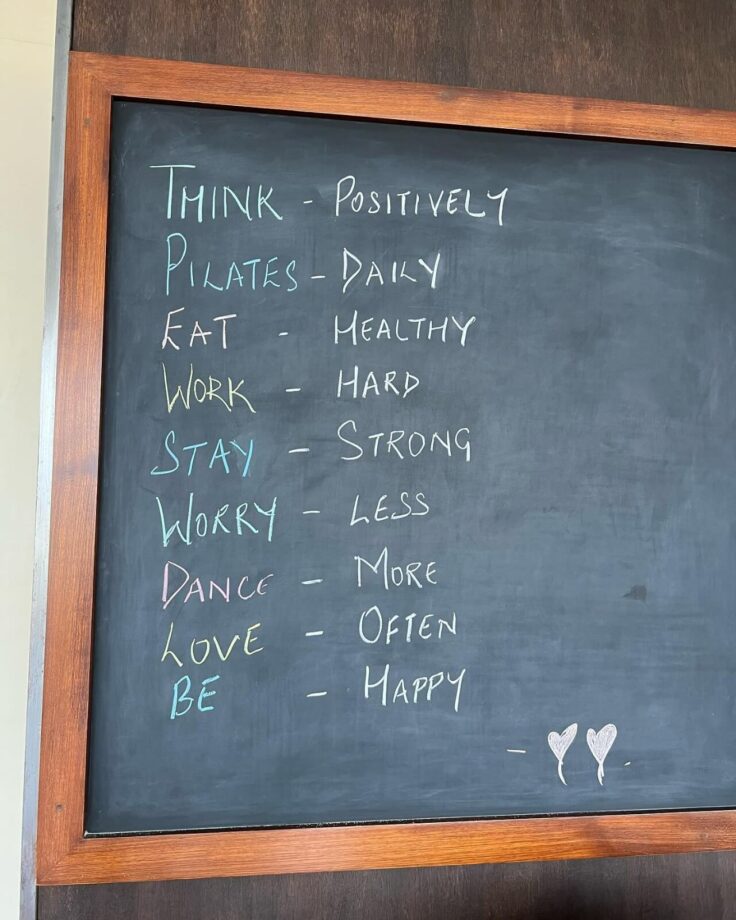 THINK - POSITIVELY
PILATES - DAILY
EAT - HEALTHY
WORK - HARD
STAY - STRONG
WORRY - LESS
DANCE - MORE
LOVE - OFTEN
BE - HAPPY